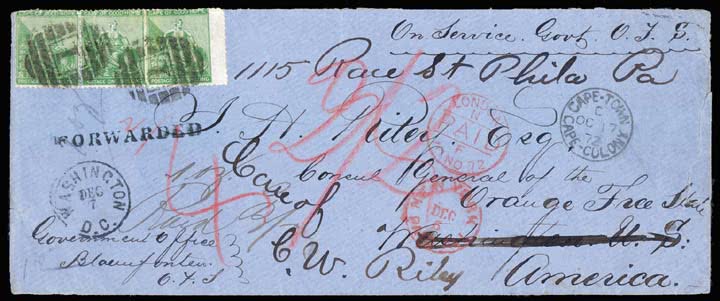 On Service. Govt. O. F. S.
1115 Race St Phila Pa
FORWARDED
J. H. Riley, Esq
Consul General of the
Orange Free State
Washington. U. S.
America.
Care of
C. W. Riley
Government Office
Bloemfontein.
O. F. S
WASHINGTON
DEC
7
D.C.
LONDON
PAID
NO 72
CAPE-TOWN
OC 7
CAPE-COLONY
NEW YORK
DEC
PAID